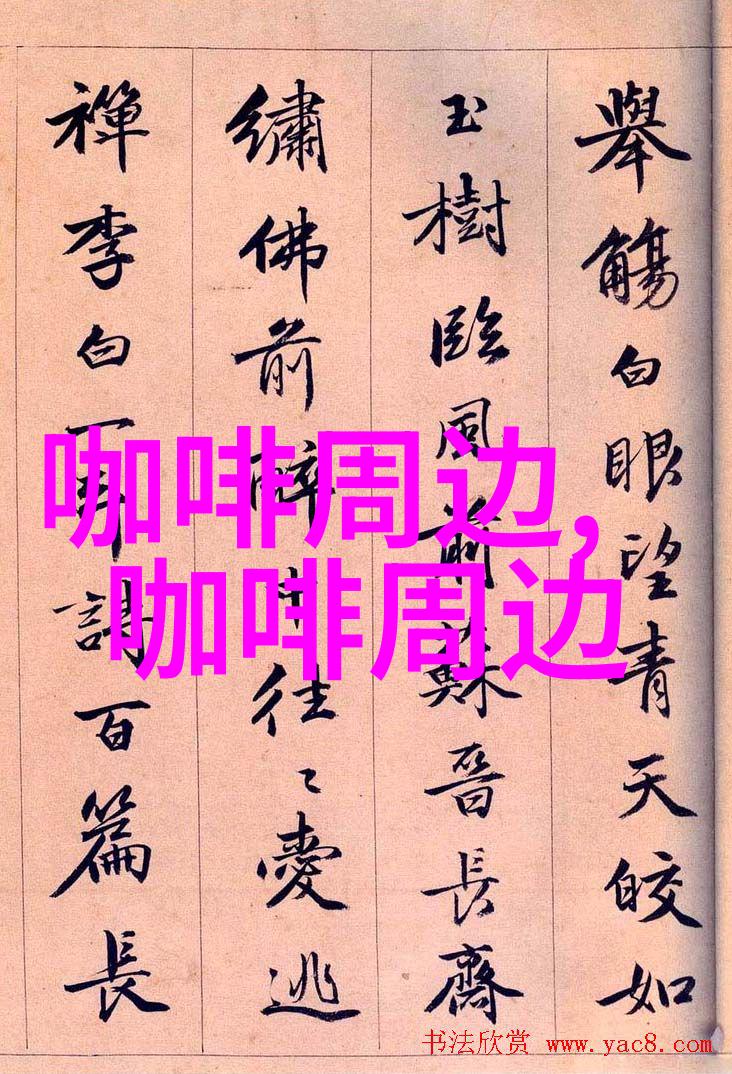 舉觴白眼望青天皎如
玉樹臨風前蘇晉長齋
繡佛前醉中往〻愛逃
禪李白一斗詩百篇長
咖啡周边,
咖啡周边
书法欣赏 www.yac8.com